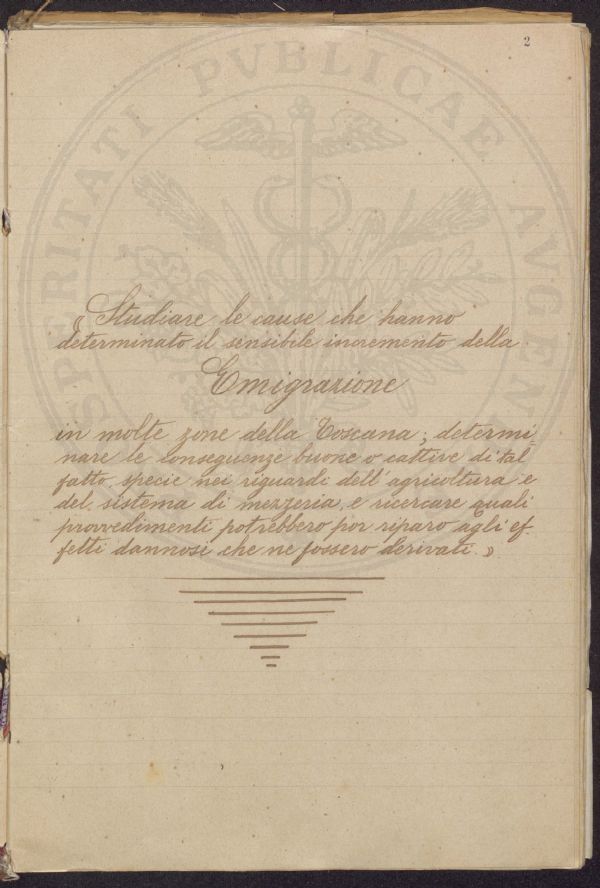 2
« Studiare le cause che hanno
determinato il sensibile incremento della
Emigrazione
in molte zone della Toscana; determi-
nare le conseguenze buone o cattive di tal
fatto, specie nei riguardi dell'agricoltura e
del sistema di mezzeria, e ricercare quali
provvedimenti potrebbero por riparo agli ef-
fetti dannosi che ne fossero derivati. »
SPERITATI PVBLICAE AVGEN